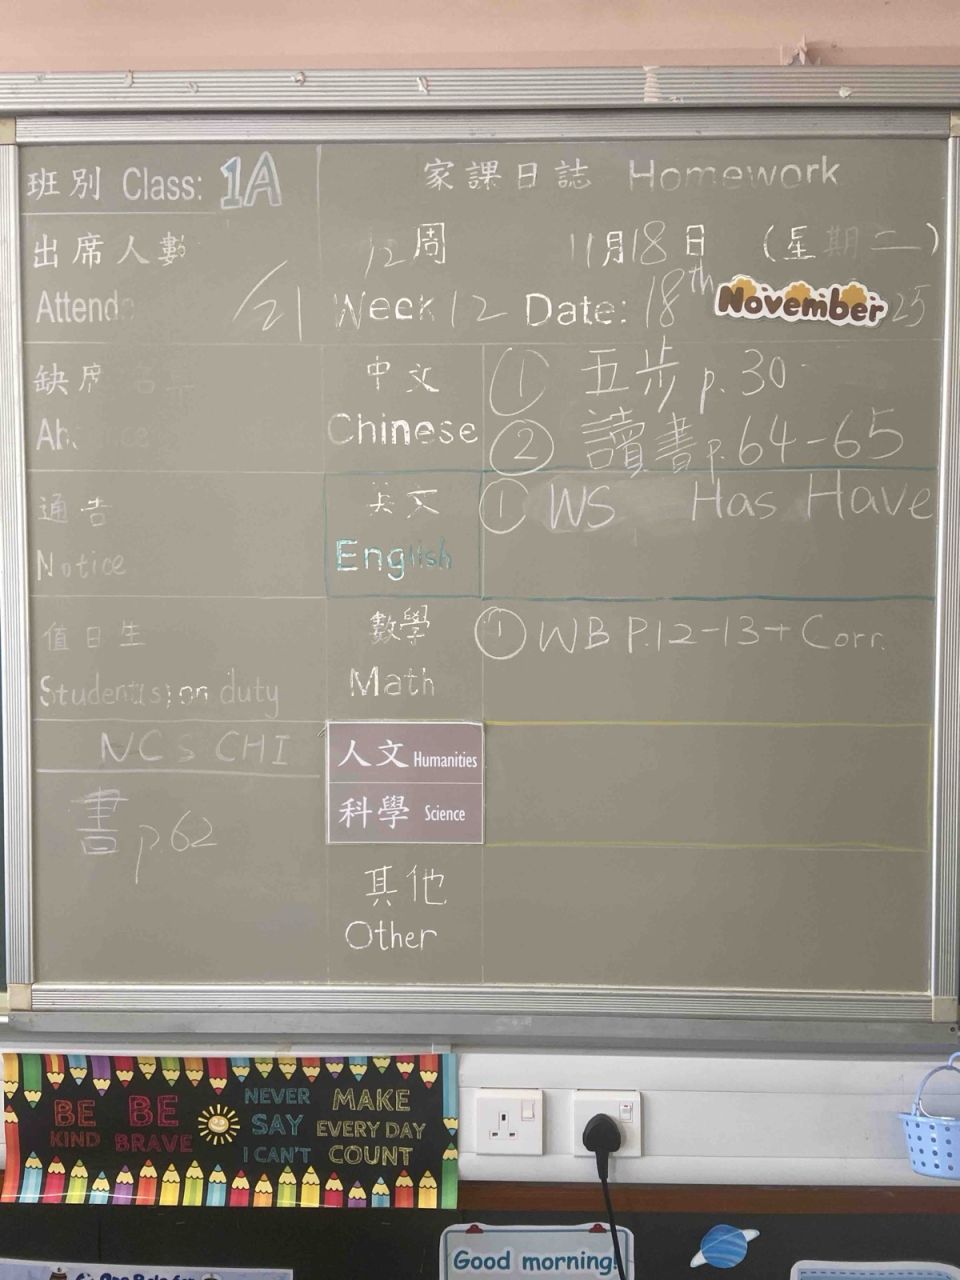 班別 Class: 1A
家課日誌 Homework
出席人數
12周 11月18日 (星期二)
Attend /21
Week 12 Date: 18th November 25
缺席
中文
Chinese
① 五步 p.30
② 讀書 p.64-65
通告
Notice
英文
English
① WS Has Have
值日生
Student(s) on duty
數學
Math
① WB P.12-13 + Corr.
NCS CHI
書 p.62
人文 Humanities
科學 Science
其他
Other
BE KIND
BE BRAVE
NEVER SAY I CAN'T
MAKE EVERY DAY COUNT
Good morning!